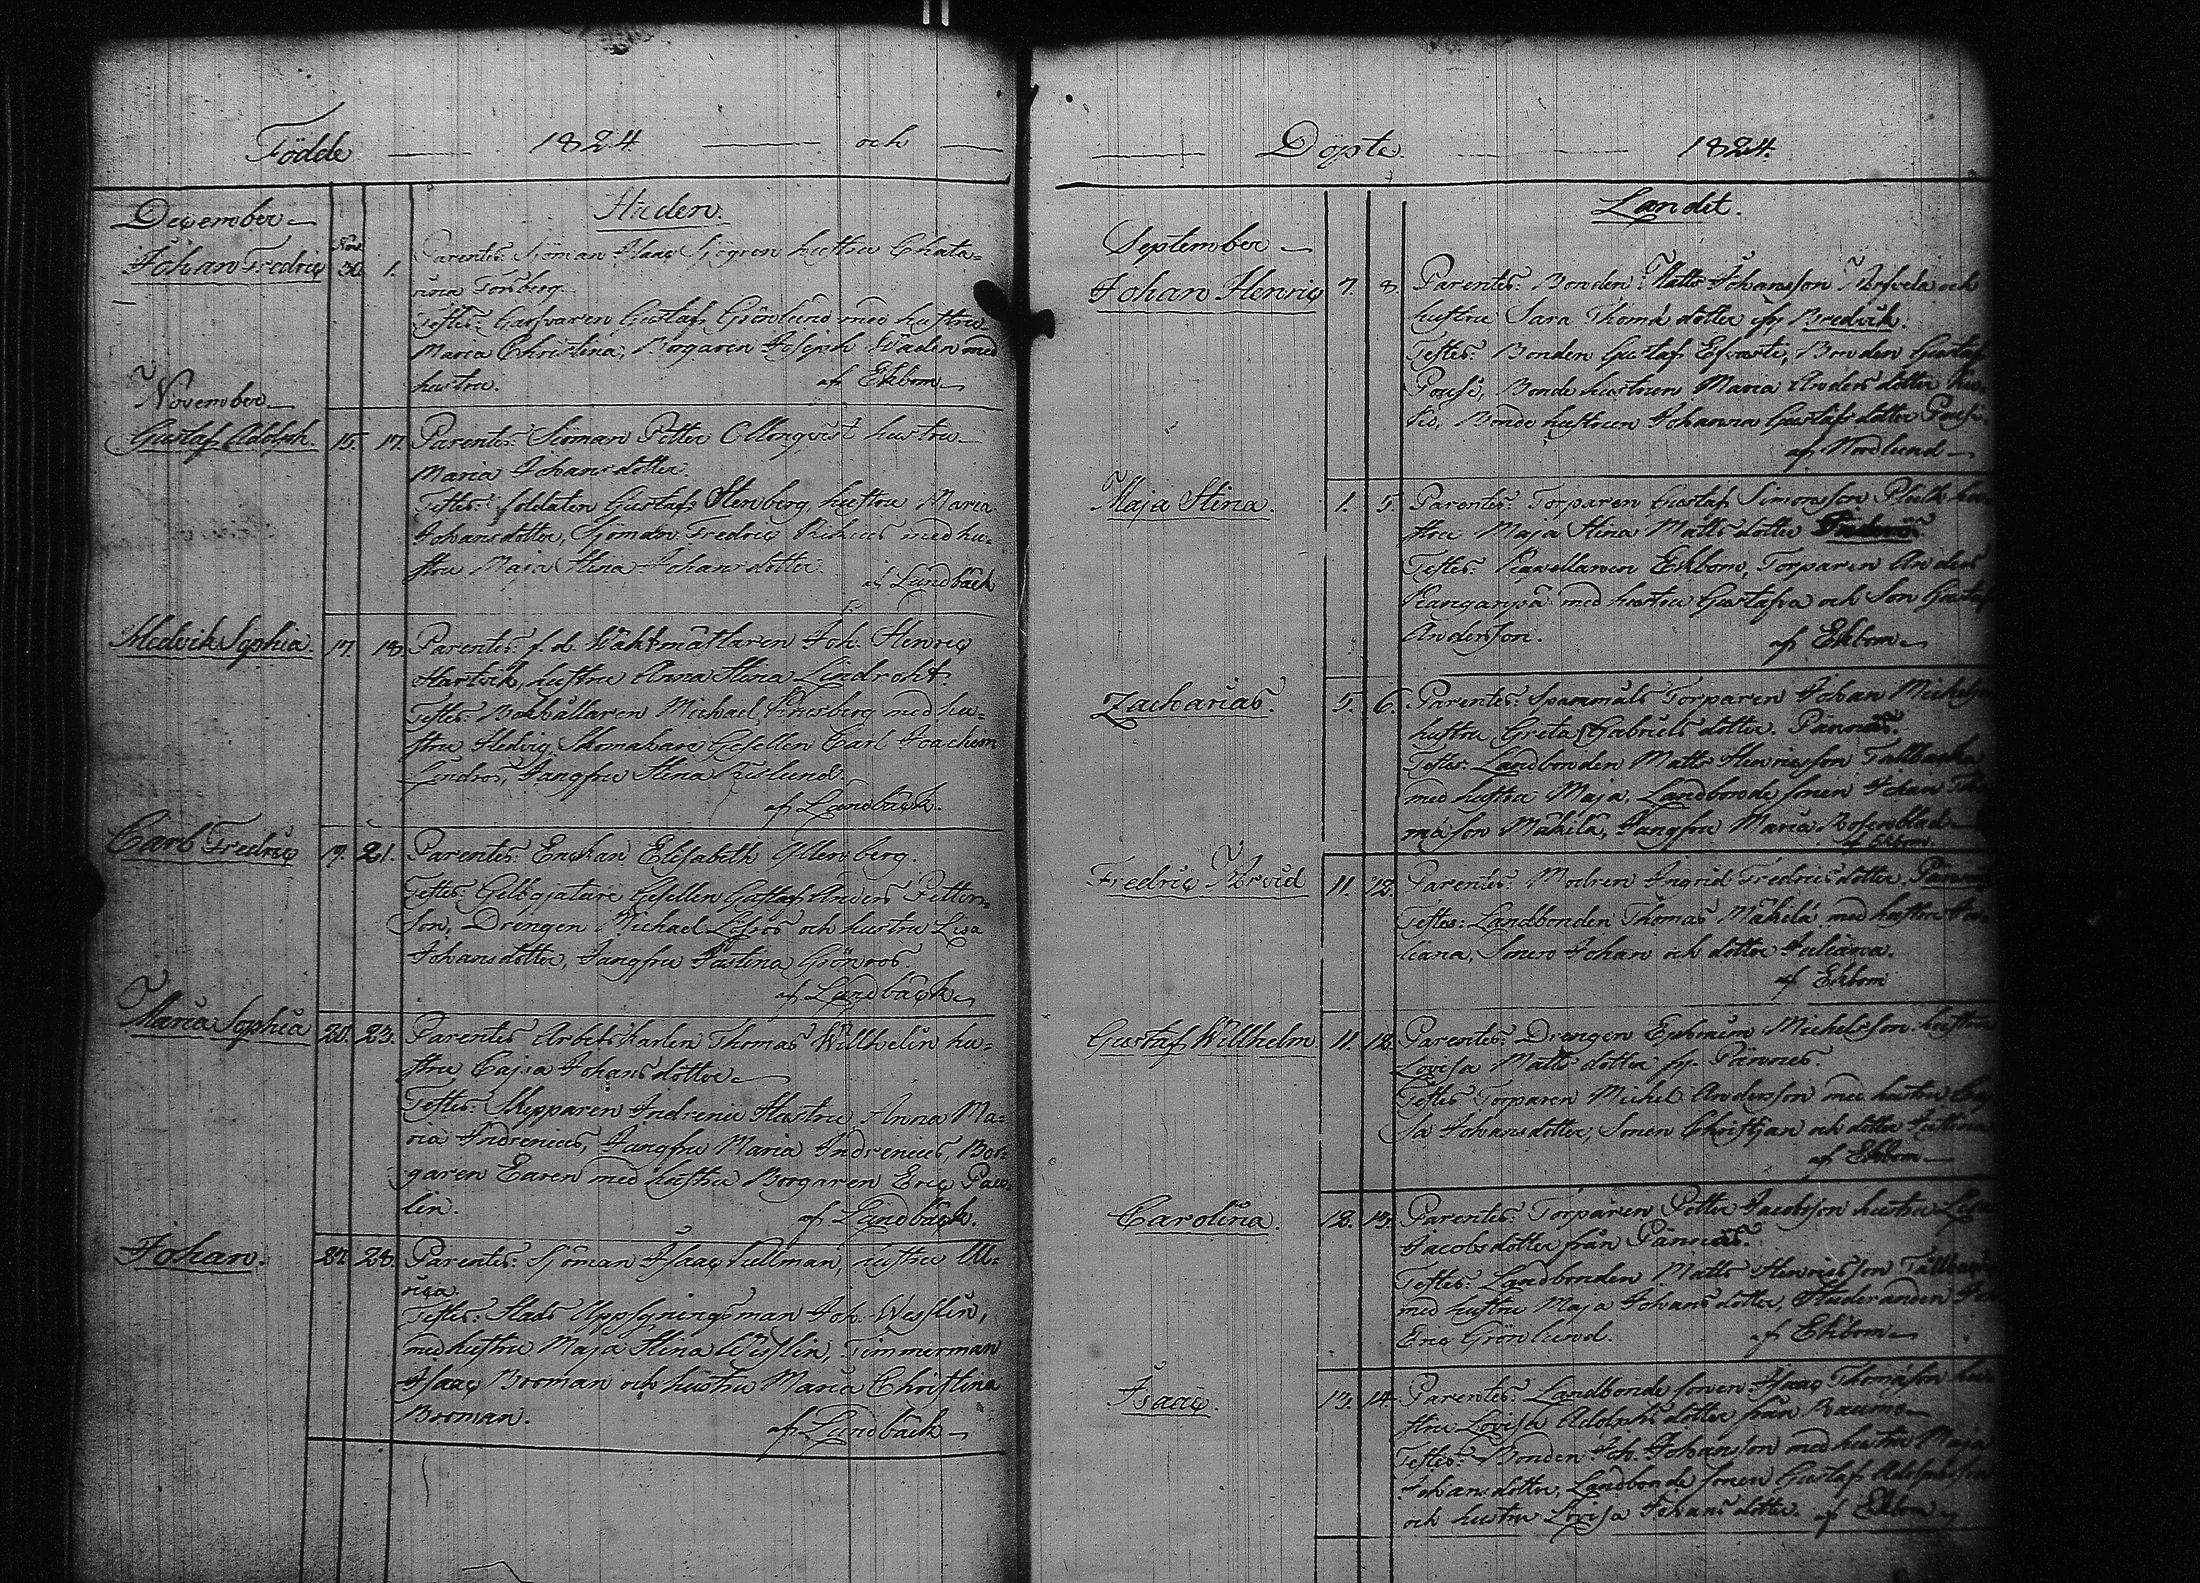 Födde — 1824 — och —
Staden.
December
Johan Fredric Nov. 30. 1. Parentes: Sjöman Isaac Sjögren hustru Chata=
rina Forsberg.
Testes: Garfvaren Gustaf Grönlund med hustru
Maria Christina, Borgaren Joseph Wadén med
hustru. af Ekbom
November
Gustaf Adolph. 15. 17. Parentes: Siöman Petter Ollonqvist hustru
Maria Johansdotter.
Testes: Soldaten Gustaf Stenberg, hustru Maria
Johansdotter, Sjöman Fredric med hu=
stru Maja Stina Johansdotter.
af Lundbäck
Hedvik Sophia. 17. 18. Parentes: f. d. Wäktmästaren Joh. Henric
Hartvik, hustru Anna Stina Lindroht.
Testes: Bokhållaren Michael med hu=
stru Hedvig, Skomakare Gesellen Carl Joachim
Lindros, Jungfru Stina
af Lundbäck.
Carl Fredric 19. 21. Parentes: Enckan Elisabeth Gyllenberg.
Testes: Gelbgjutare Gesellen Gustaf Anders Petters=
son, Drengen Michael Löfros och hustru Lisa
Johansdotter, Jungfru Justina Grönros.
af Lundbäck
Maria Sophia 20. 23. Parentes Arbetskarlen Thomas Willhelin hu=
stru Cajsa Johansdotter
Testes: Skepparen Indrenii Hustru Anna Ma=
ria Indrenius, Jungfru Maria Indrenius, Bor=
garen Earen med hustru Borgaren Eric Pau=
lin. af Lundbäck.
Johan. 27. 28. Parentes: Sjöman Isaac Sullman, hustru Ul=
rica.
Testes: Stads Uppsyningsman Joh. Wesslin,
med hustru Maja Stina Wesslin, Timmerman
Isaac Boman och hustru Maria Christina
Boman. af Lundbäck
— Döpte. — 1824.
Landet.
September
Johan Henric 7. 8. Parentes: Bonden Matts Johansson och
hustru Sara Thomædotter ifr Bredvik.
Testes: Bonden Gustaf Bonden Gustaf
Bondehustrun Maria Andersdotter
Bondehustrun Johanna Gustafsdotter
af Nordlund
Maja Stina. 1. 5. Parentes: Torparen Gustaf Simonsson hu=
stru Maja Stina Mattsdotter
Testes: Capellanen Ekbom, Torparen Anders
med hustru Gustafva och Son Gustaf
Andersson. af Ekbom
Zacharias. 5. 6. Parentes: Spanmåls Torparen Johan Michelsson
hustru Greta Gabrielsdotter. Pännäs.
Testes: Landbonden Matts Henricsson Tallbacka
med hustru Maja, Landbonde sonen Johan Tho
mæson Mäkilä, Jungfru Maria Rosenblad
af Ekbom.
Fredric Arvid 11. 12. Parentes: Modren Ingrid Fredricsdotter,
Testes: Landbonden Thomas Mäkilä med hustru Ju=
liana, Sonen Johan och dotter Juliana.
af Ekbom
Gustaf Willhelm 11. 12. Parentes: Drengen Ephraim Michelsson hustru
Lovisa Mattsdotter fr. Pännes.
Testes Torparen Michel Andersson med hustru Caj
sa Johansdotter, Sonen Christjan och dotter Justina
af Ekbom
Carolina. 12. 13. Parentes: Torparen Petter Jacobsson hustru Lisa
Jacobsdotter från Pännäs.
Testes: Landbonden Matts Henricsson Tallbacka
med hustru Maja Johansdotter, Studeranden
Eric Grönlund. af Ekbom
Isaac. 13. 14. Parentes: Landbonde sonen Isaac Thomæson hu
stru Lovisa Adolphsdotter från Raumo
Testes: Bonden Joh. Johansson med hustru Maja
Johansdotter, Landbonde sonen Gustaf Adolphsson
och hustru Lovisa Johansdotter. af Ekbom